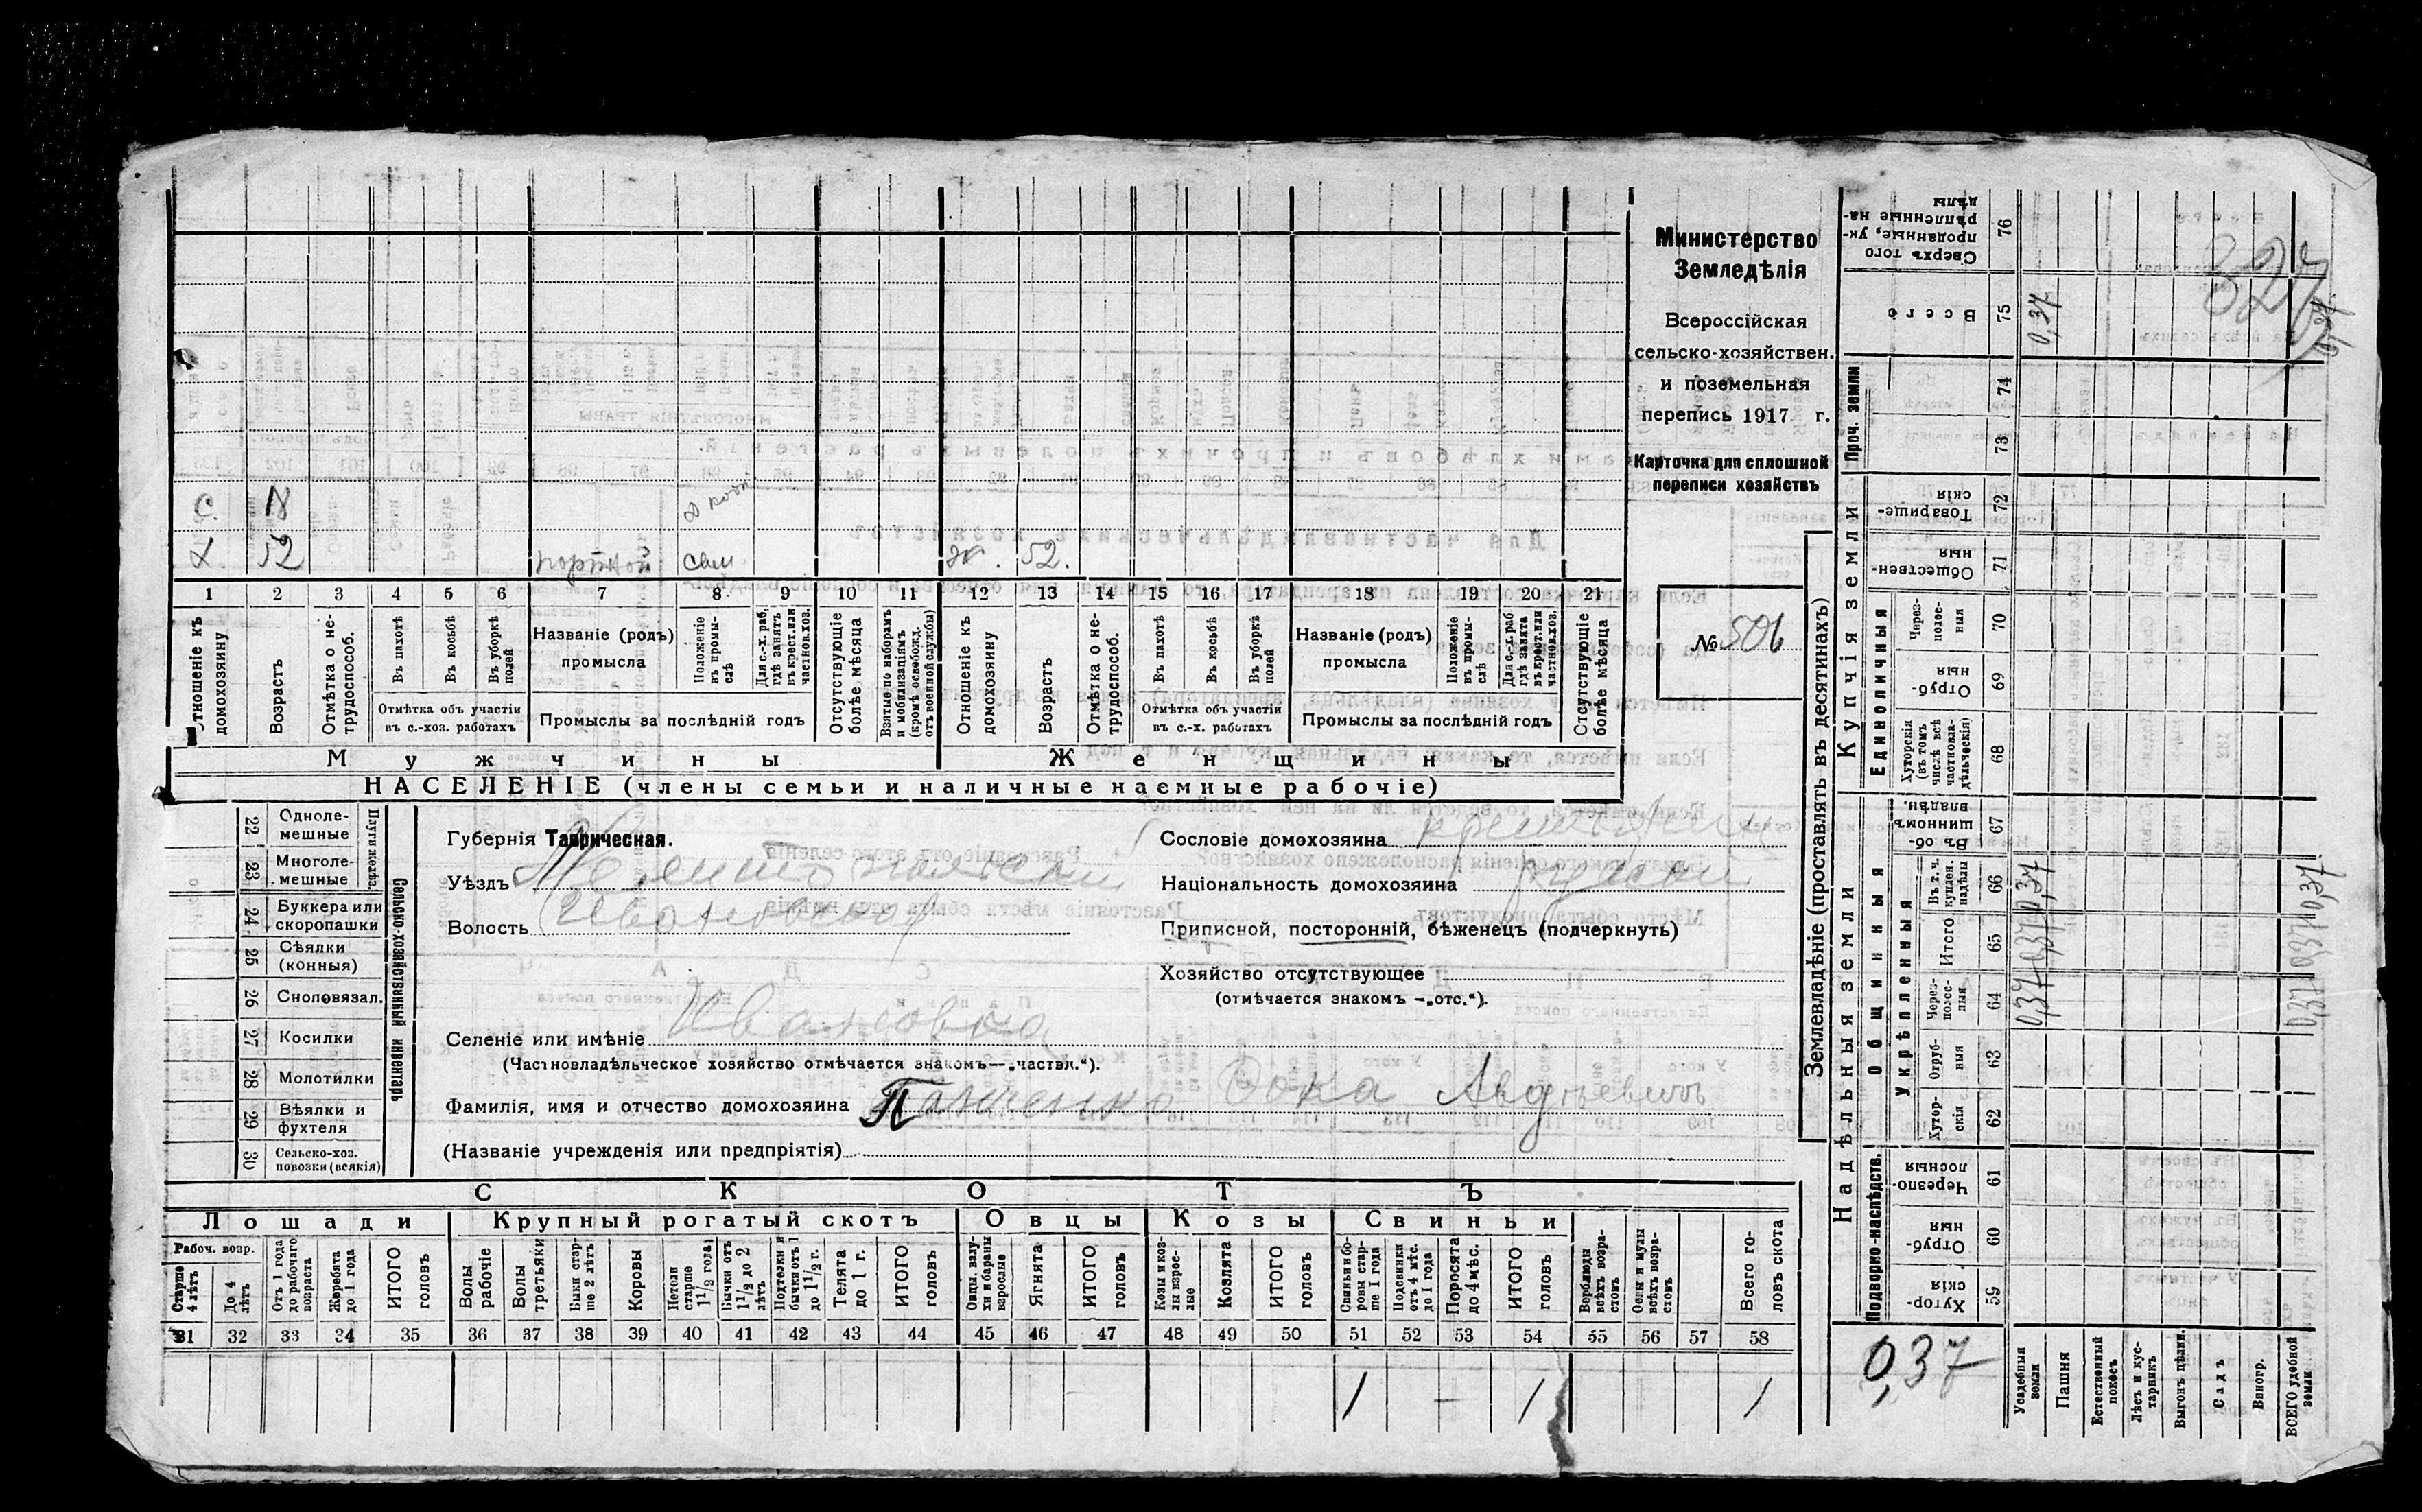 Министерство
Земледѣлія
Всероссійская
сельско-хозяйствен.
и поземельная
перепись 1917 г.
Карточка для сплошной
переписи хозяйствъ
№ 506
с. 18
8 кл
х. 52 портной сам ж. 52.
1 2 3 4 5 6 7 8 9 10 11 12 13 14 15 16 17 18 19 20 21
Отношеніе къ домохозяину
Возрастъ
Отмѣтка о нетрудоспособ.
Въ пахотѣ
Въ косьбѣ
Въ уборкѣ полей
Отмѣтка объ участіи въ с.-хоз. работахъ
Названіе (родъ) промысла
Положеніе въ промыслѣ
Для с.-х. раб, гдѣ занятъ въ крест. или частнов. хоз.
Промыслы за послѣдній годъ
Отсутствующіе болѣе мѣсяца
Взятые по наборамъ и мобилизаціямъ (кромѣ освобожд. отъ военной службы)
Отношеніе къ домохозяину
Возрастъ
Отмѣтка о нетрудоспособ.
Въ пахотѣ
Въ косьбѣ
Въ уборкѣ полей
Отмѣтка объ участіи въ с.-х. работахъ
Названіе (родъ) промысла
Положеніе въ промыслѣ
Для с.-х. раб гдѣ занята въ крест. или частнов. хоз.
Промыслы за послѣдній годъ
Отсутствующіе болѣе мѣсяца
Мужчины Женщины
НАСЕЛЕНІЕ (члены семьи и наличные наемные рабочіе)
22 Однолемешные
23 Многолемешные
Плуги желѣз.
24 Буккера или скоропашки
25 Сѣялки (конныя)
26 Сноповязал.
27 Косилки
28 Молотилки
29 Вѣялки и фухтеля
30 Сельско-хоз. повозки (всякія)
Сельско-хозяйственный инвентарь
Губернія Таврическая.
Уѣздъ Мелитопольскій
Волость Ивановская
Сословіе домохозяина крестьянин
Національность домохозяина русский
Приписной, посторонній, бѣженецъ (подчеркнуть)
Хозяйство отсутствующее
(отмѣчается знакомъ —„отс.“).
Селеніе или имѣніе Ивановка
(Частновладѣльческое хозяйство отмѣчается знакомъ—„частвл.“).
Фамилія, имя и отчество домохозяина Фока Авдѣевичъ
(Названіе учрежденія или предпріятія)
СКОТЪ
Лошади Крупный рогатый скотъ Овцы Козы Свиньи
Рабоч. возр.
Старше 4 лѣтъ
До 4 лѣтъ
Отъ 1 года до рабочаго возраста
Жеребята до 1 года
ИТОГО головъ
Волы рабочіе
Волы третьяки
Быки старше 2 лѣтъ
Коровы
Нетели старше 1½ года
Бычки отъ 1½ до 2 лѣтъ
Подтелки и бычки отъ 1 до 1½ г.
Телята до 1 г.
ИТОГО головъ
Овцы, валухи и бараны взрослые
Ягнята
ИТОГО головъ
Козы и козлы взрослые
Козлята
ИТОГО головъ
Свиньи и боровы старше 1 года
Подсвинки отъ 4 мѣс. до 1 года
Поросята до 4 мѣс.
ИТОГО головъ
Верблюды всѣхъ возрастовъ
Ослы и мулы всѣхъ возрастовъ
Всего головъ скота
31 32 33 34 35 36 37 38 39 40 41 42 43 44 45 46 47 48 49 50 51 52 53 54 55 56 57 58
1 – 1 1
Землевладѣніе (проставлять въ десятинахъ)
Надѣльныя земли
Купчія земли
Проч. земли
Подворно-наслѣдств.
Общинныя
Укрѣпленныя
Единоличныя
Сверхъ того проданные, укрѣпленные надѣлы 76
Всего 75
74
73
Товарищескія 72
Общественныя 71
Черезполесныя 70
Отрубныя 69
Хуторскія (въ томъ числѣ всѣ частновладѣльческія) 68
Въ общинномъ владѣн. 67
Въ т. ч. куплен. надѣлы 66
Итого 65
Черезполосныя 64
Отрубныя 63
Хуторскія 62
Черезполосныя 61
Отрубныя 60
Хуторскія 59
0,37
0,37 0,37 0,37
0,37
0,37 0,37 0,37
327
0,37
Усадебныя земли
Пашня
Естественный покосъ
Лѣсъ и кустарникъ
Выгонъ цѣлин.
Садъ
Виногр.
ВСЕГО удобной земли